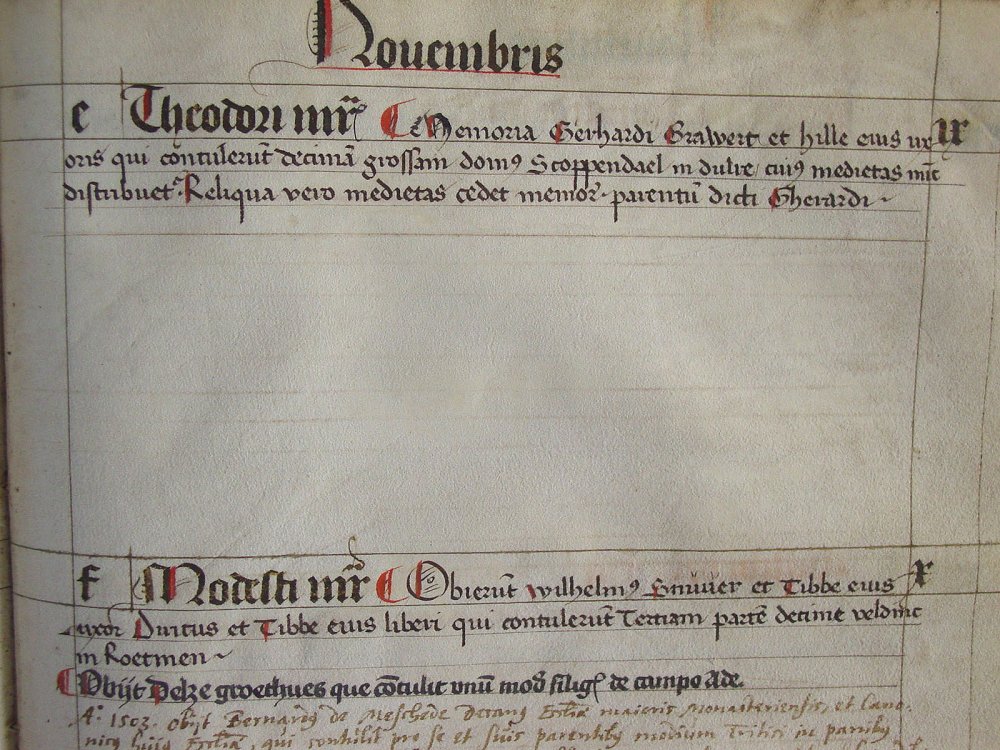 Nouembris
e Theodori mr̄ꝭ Memoria Gerhardi Grawert et hille eius ux ix
oris qui cōtulerūt decimā grossam domꝰ Scoppendael in dulre, cuiꝰ medietas
distribuet᷑. Reliqua vero medietas cedet memor. parentū dicti Gherardi
f Modesti mr̄ꝭ Obierūt wilhelmꝰ et Tibbe eius x
uxor et Tibbe eius liberi qui contulerūt Tertiam partē decime
in Roetmen
Obijt Delze groethues que cōtulit vnū mod̄ siligꝭ de campo Ade.
Aº. 1503. obijt Bernardꝰ de Meschede Decanꝰ Ecclīæ maioris Monasteriensis, et Cano-
nicꝰ huiꝰ Ecclīæ, qui contulit pro se et suis parentibꝰ modium tritici in